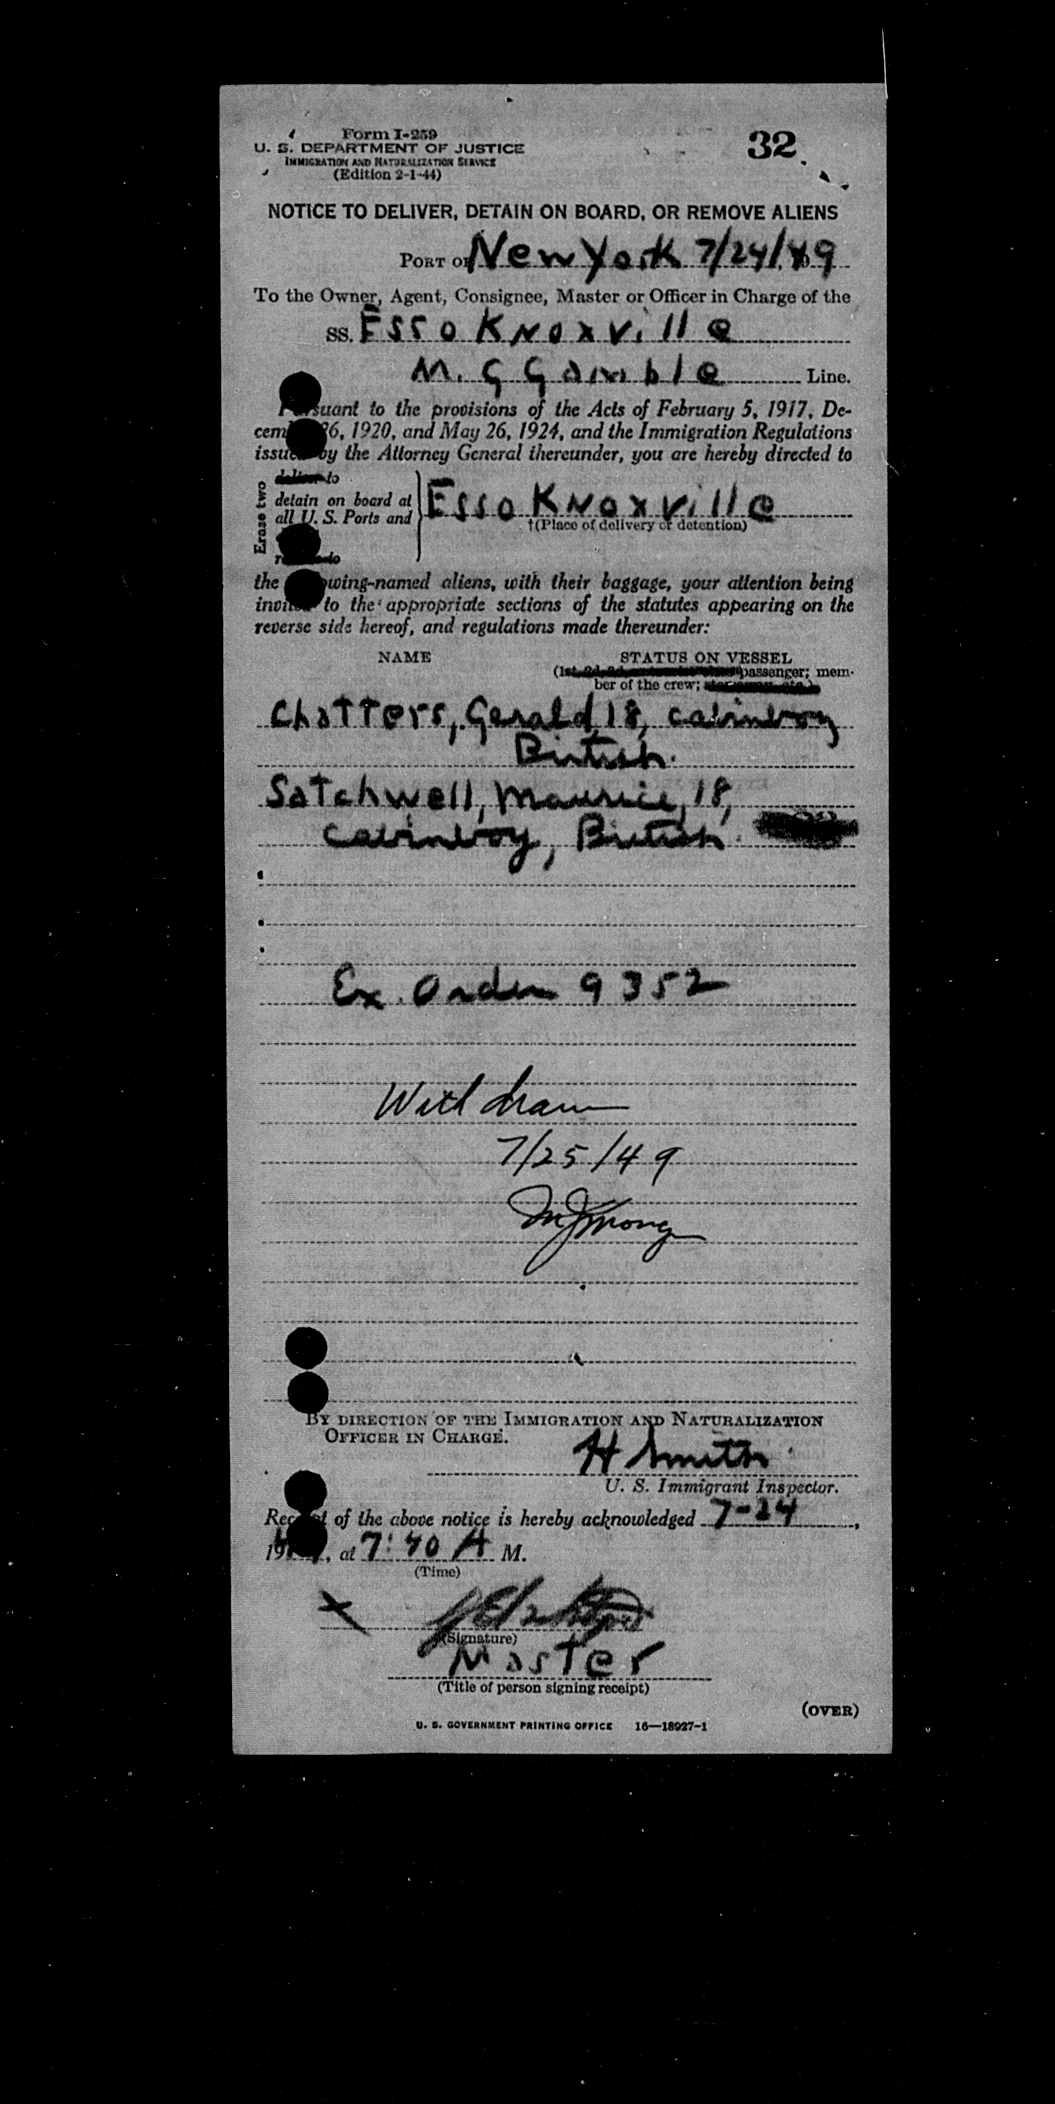 Form I-259
32
U. S. DEPARTMENT OF JUSTICE
IMMIGRATION AND NATURALIZATION SERVICE
(Edition 2-1-44)
NOTICE TO DELIVER, DETAIN ON BOARD, OR REMOVE ALIENS
PORT OF New York 7/24/49
To the Owner, Agent, Consignee, Master or Officer in Charge of the
SS. Esso Knoxville
M. G Gamble Line.
Pursuant to the provisions of the Acts of February 5, 1917, De-
cember 26, 1920, and May 26, 1924, and the Immigration Regulations
issued by the Attorney General thereunder, you are hereby directed to
Erase two
deliver to
detain on board at
all U. S. Ports and
Esso Knoxville
†(Place of delivery or detention)
the following-named aliens, with their baggage, your attention being
invited to the appropriate sections of the statutes appearing on the
reverse side hereof, and regulations made thereunder:
NAME STATUS ON VESSEL
passenger; mem-
ber of the crew;
Chatters, Gerald, 18, cabinboy
British.
Satchwell, Maurice, 18,
cabinboy, British.
Ex. Order 9352
Withdrawn
7/25/49
BY DIRECTION OF THE IMMIGRATION AND NATURALIZATION
OFFICER IN CHARGE.
H Smith
U. S. Immigrant Inspector.
Receipt of the above notice is hereby acknowledged 7-24,
19, at 7:40 A M.
(Time)
X
(Signature)
Master
(Title of person signing receipt)
(OVER)
U. S. GOVERNMENT PRINTING OFFICE 16—18927-1